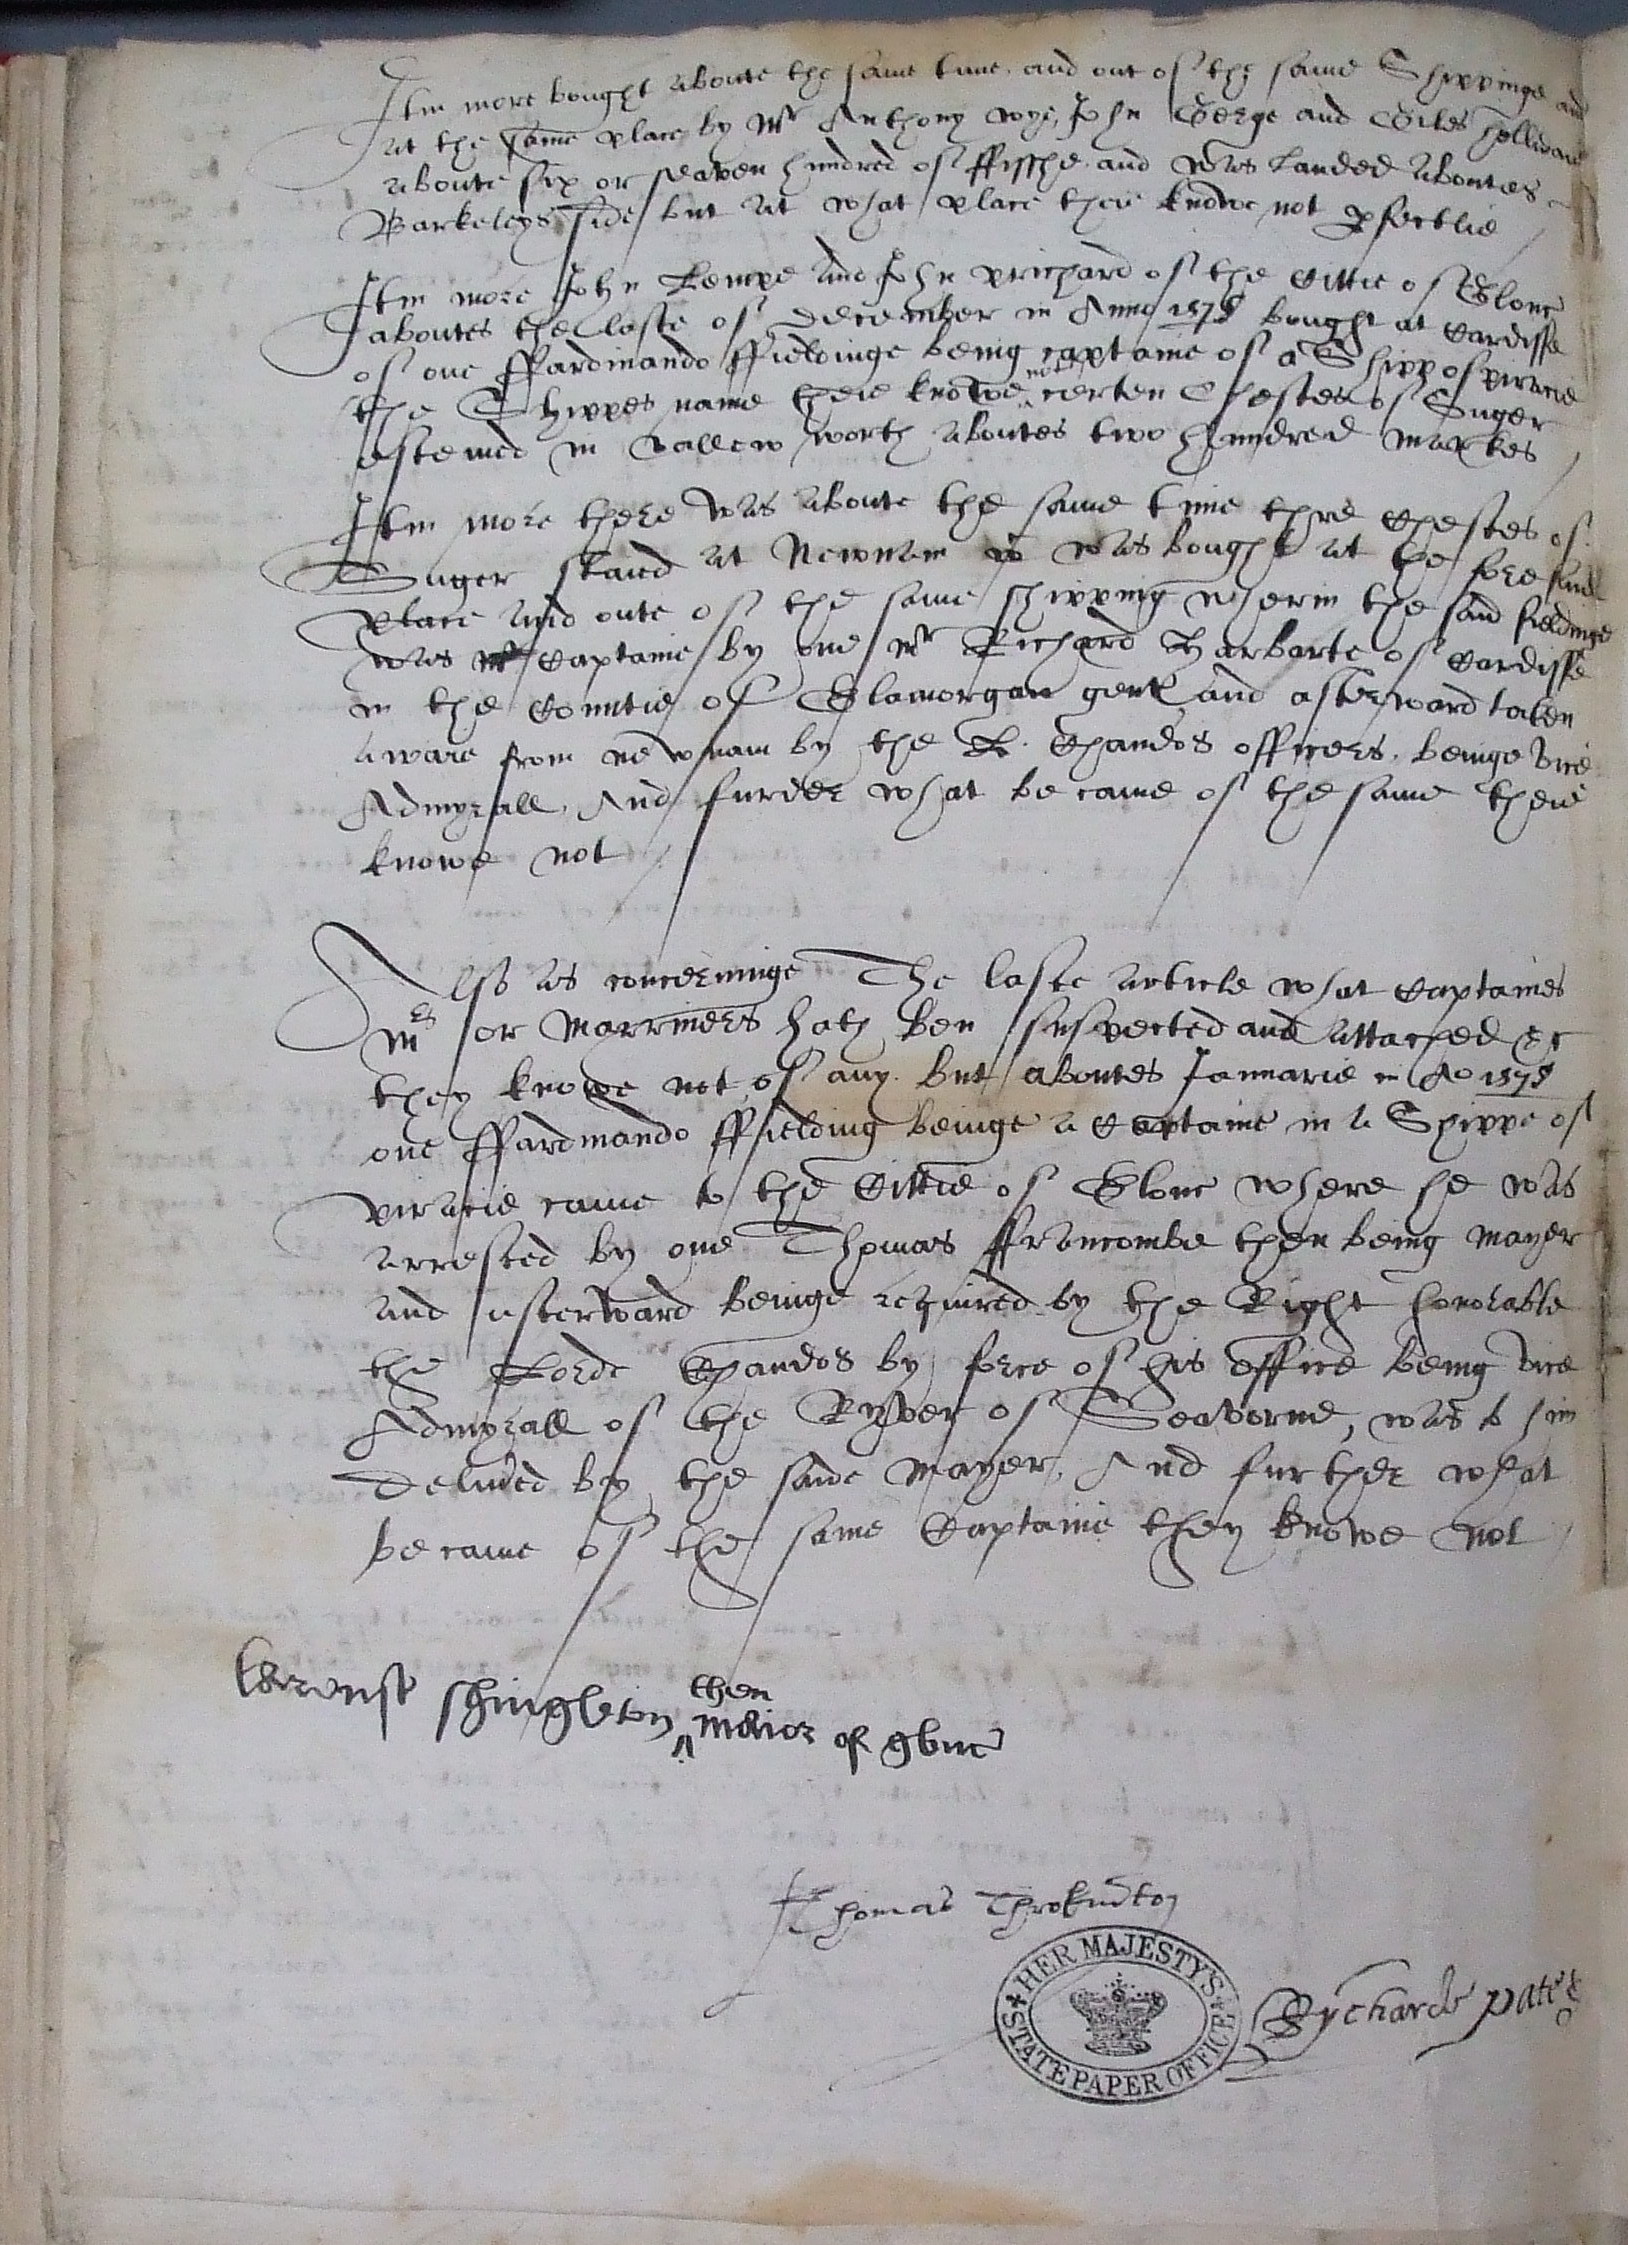 Itm more bought aboute the same time, and out of the same Shippinge and
at the same place by Mr Anthony wye, John George and Giles
aboute six or seaven hundred of ffisshe, and was Landed aboutes
Barkeleys side / but at what place theie knowe not pfectlie /
Itm more John Kempe and John prichard of the Cittie of Glouc
aboutes the laste of December in Anno 1578 bought at Cardiffe
of one ffardinando ffieldinge being captaine of a Shipp of piracie
the Shippes name theie knowe not certen Chestes of Suger
estemed in vallew worth aboutes two hundred markes /
Itm more there was aboute the same time thre Chestes of
Suger staid at Newnam wch was bought at the fore said
place and oute of the same shipping wherin the said fieldinge
was Captaine by one Mr Richard Harbarte of Cardiffe
in the Countie of Glamorgan gent and afterward taken
awaie from newnam by the L. Chandos officers, beinge vice
Admyrall, And furder what be came of the same theie
knowe not /
Also as concerninge The laste article what Captaines
Mrs or Marriners hath ben suspected and attached &c
they knowe not of any. but aboutes Januarie in Ao 1578
one ffardinando ffielding beinge a Captaine in a Shippe of
piracie came to the Cittie of Glouc where he was
arrested by one Thomas ffrancombe then being mayer
and afterward beinge required by the Right honorable
the Lorde Chandos by force of his office being vice
Admyrall of the Ryver of Seaverne, was to him
delived by the same Mayer, And further what
be came of the same Captaine they knowe not /
shingleton then
maior of glouc
Thomas Throkmton
HER MAJESTY'S STATE PAPER OFFICE
Rycharde pates